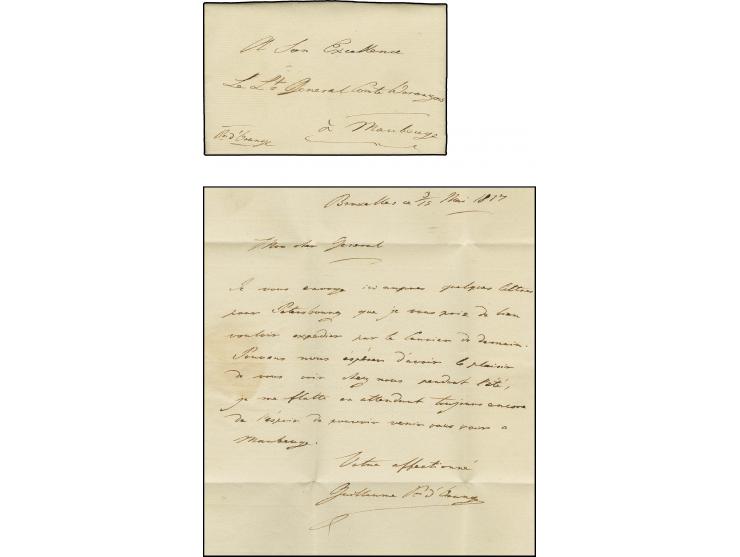 A Son Excellence
Le Lt General Comte Woronzow
à Maubeuge
Pce d'Orange
Bruxelles ce 3/15 Mai 1817
Mon cher General
Je vous envoye ici quelques lettres
pour Petersbourg que je vous prie de bien
vouloir expedier par le Courier de demain.
Pouvons nous éspérer d'avoir le plaisir
de vous voir chez nous pendant l'été,
je me flatte en attendant toujours encore
de l'éspoir de pouvoir venir vous voir a
Maubeuge.
Votre affectionné
Guillaume Pce d'Orange